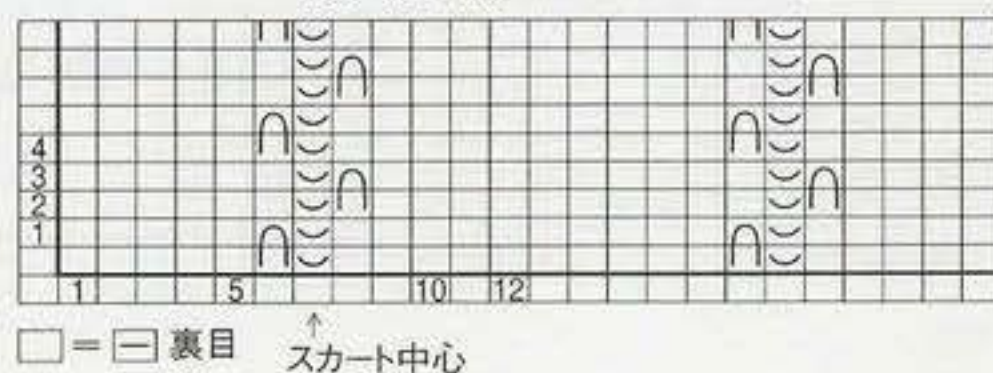 4
3
2
1
1 5 10 12
□ = − 裏目
↑
スカート中心